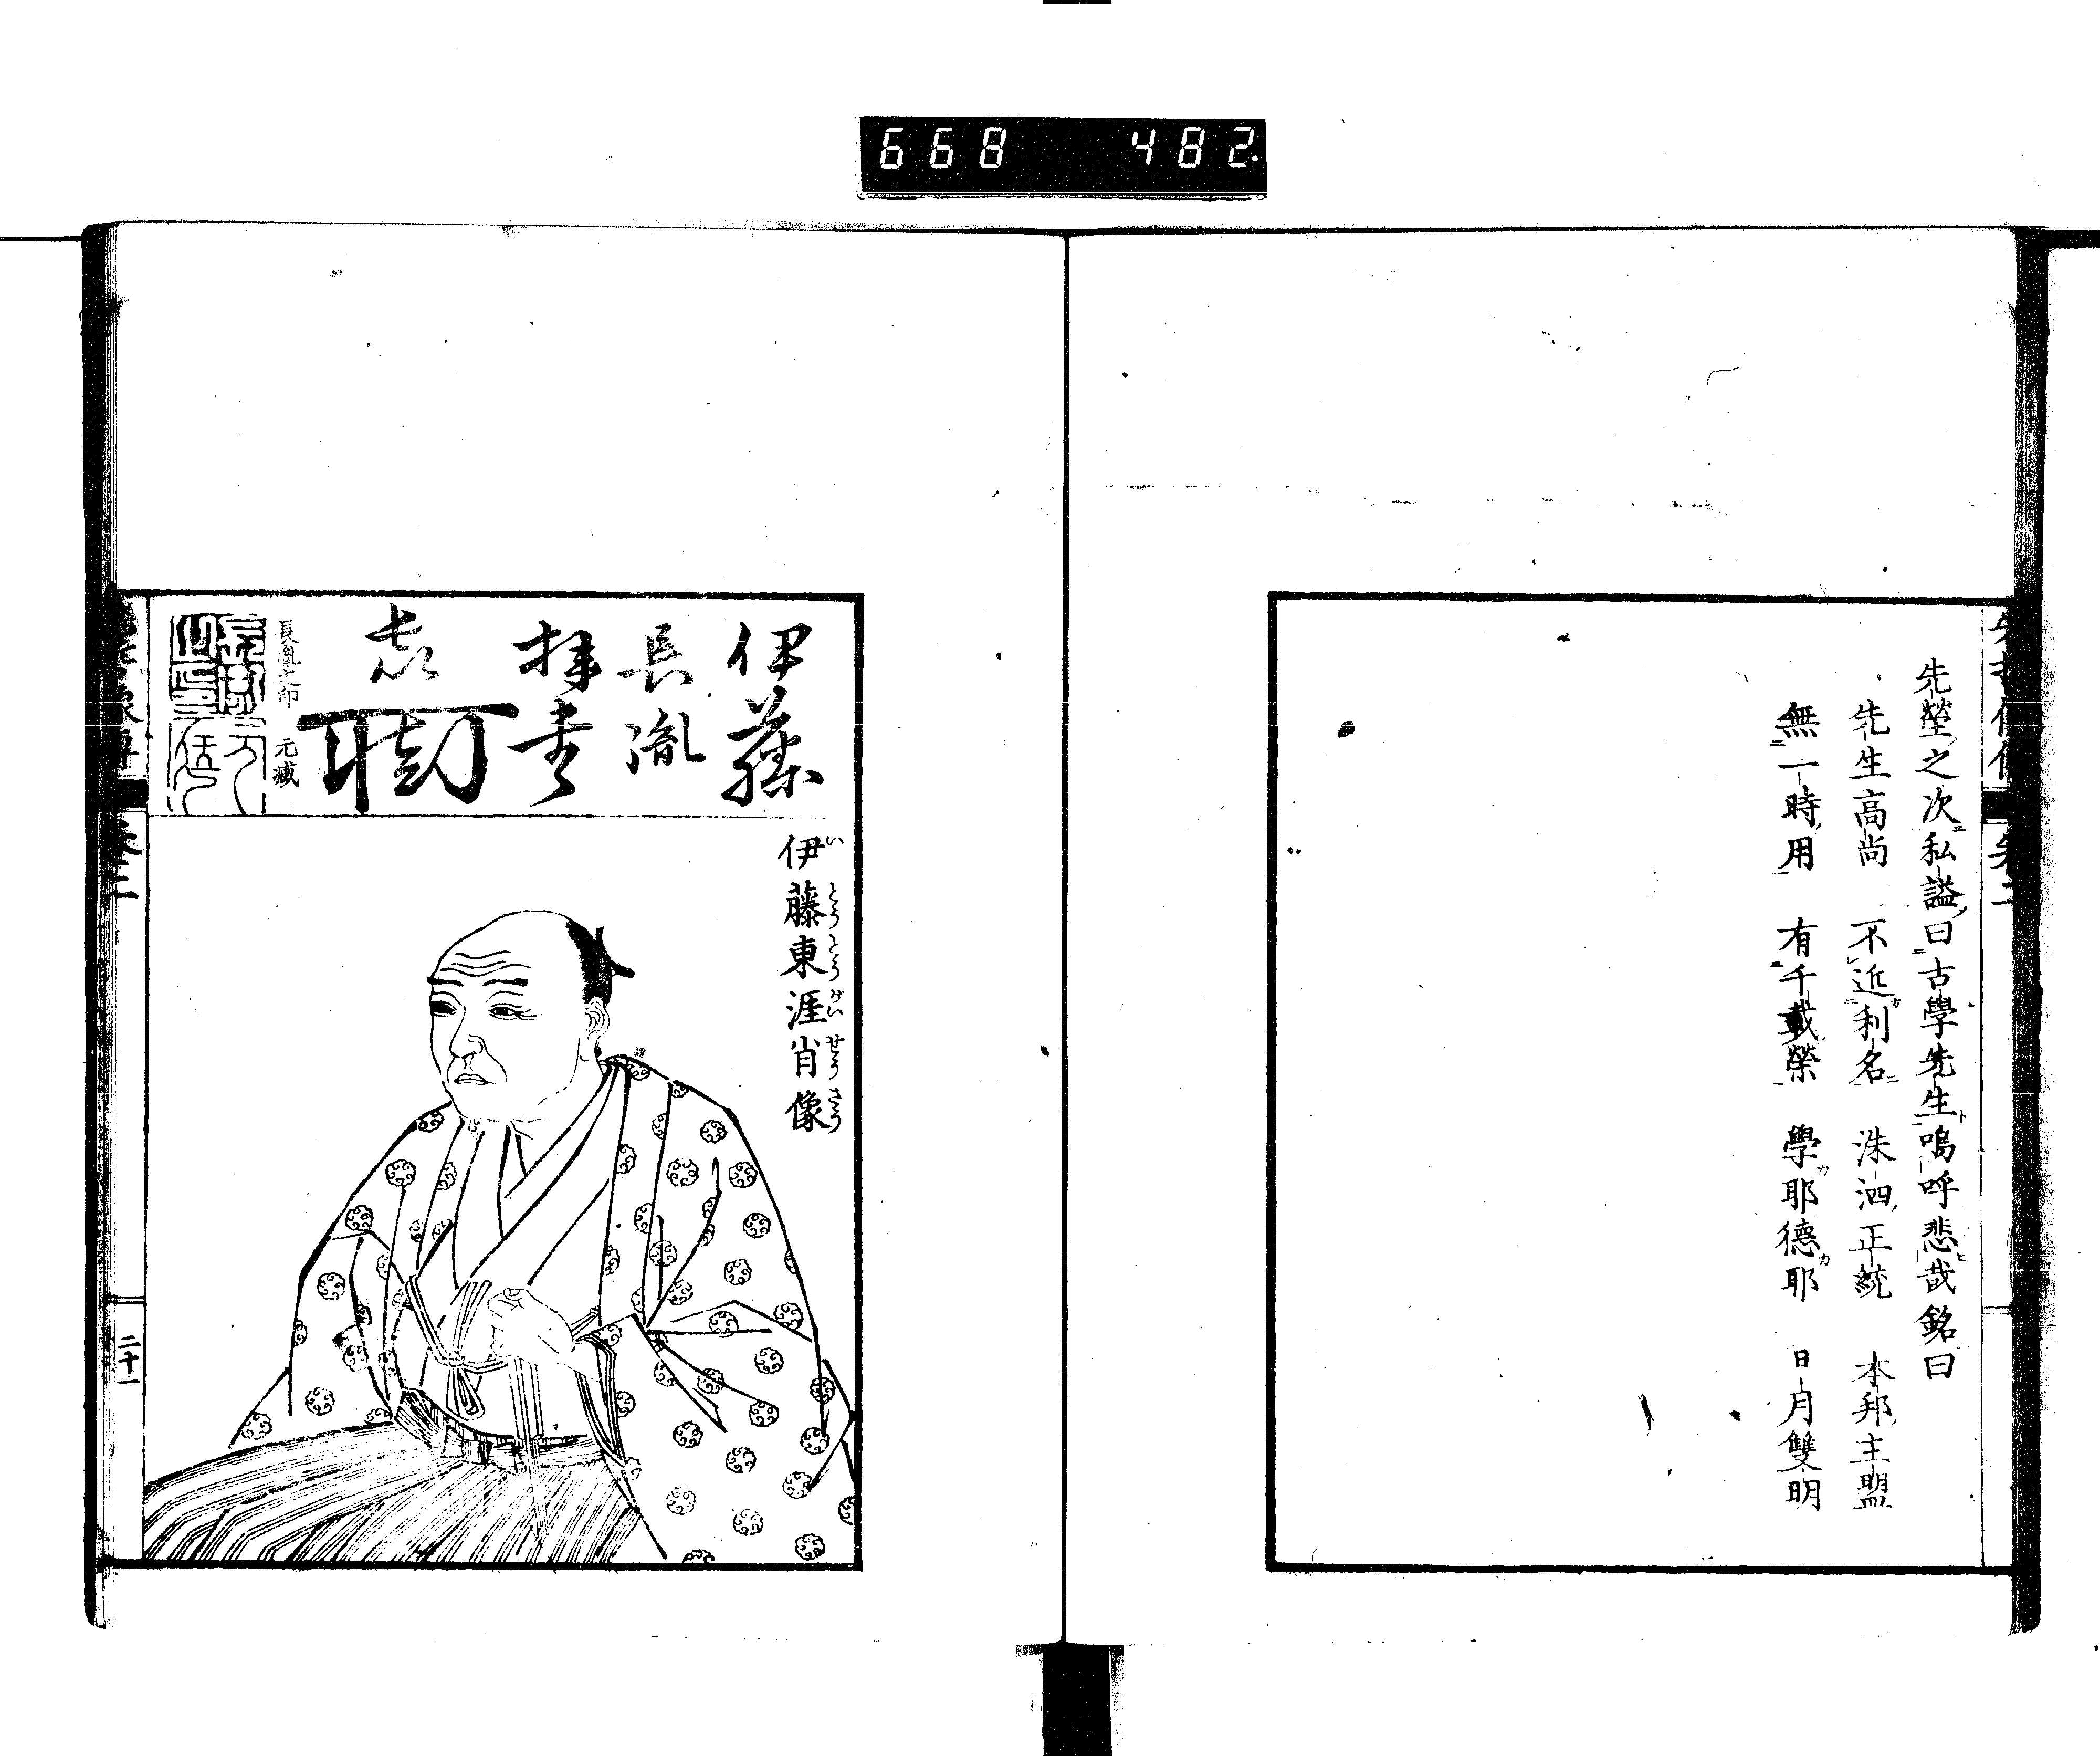 668 482.
先塋之次私謚曰古學先生嗚呼悲哉銘曰
先生高尚 不近利名 洙泗正統 本邦主盟
無一時用 有千載榮 學耶德耶 日月雙明
伊藤
長胤
拜書
長胤之印 元藏
伊藤東涯肖像
いとうとうがいせうさう
卷二
二十一